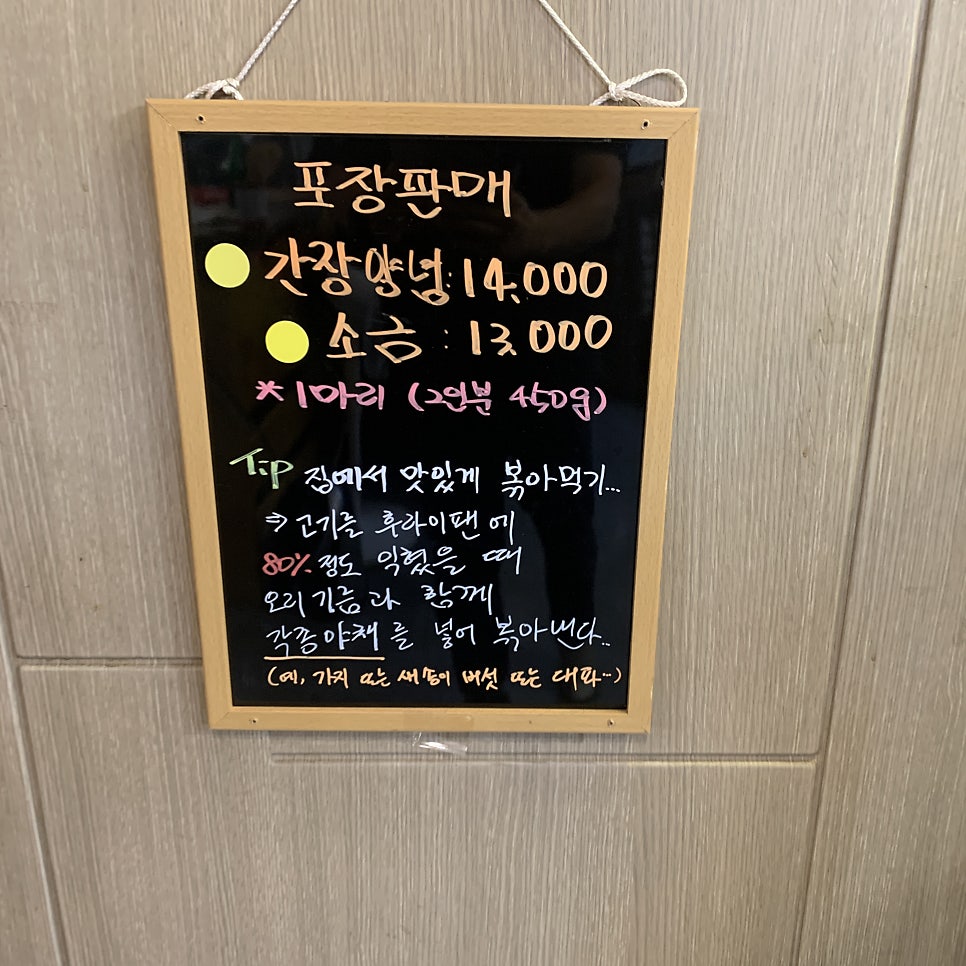 포장판매
간장양념: 14,000
소금 : 13,000
* 1마리 (2인분 450g)
Tip 집에서 맛있게 볶아먹기...
⇒ 고기를 후라이팬에
80% 정도 익혔을 때
오리기름과 함께
각종야채를 넣어 볶아낸다..
(예, 가지 또는 새송이 버섯 또는 대파...)